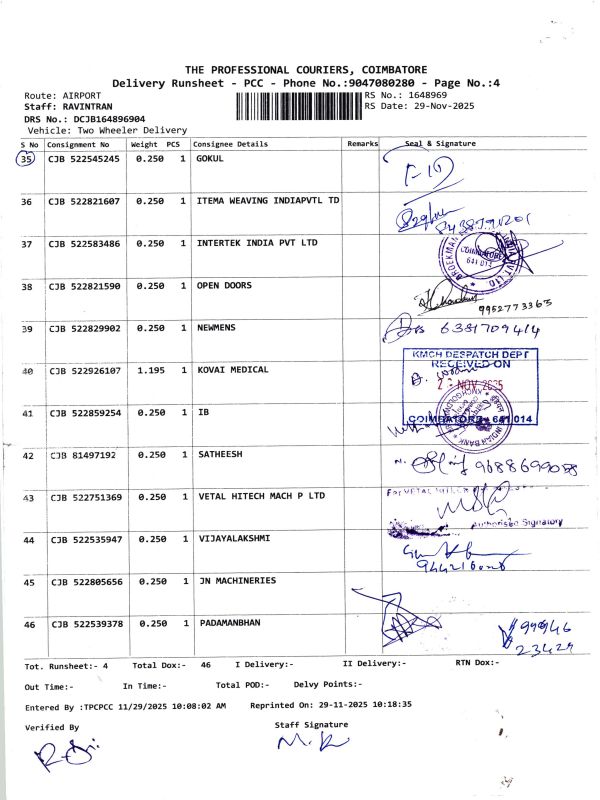 THE PROFESSIONAL COURIERS, COIMBATORE
Delivery Runsheet - PCC - Phone No.:9047080280 - Page No.:4
Route: AIRPORT RS No.: 1648969
Staff: RAVINTRAN RS Date: 29-Nov-2025
DRS No.: DCJB164896904
Vehicle: Two Wheeler Delivery
S No Consignment No Weight PCS Consignee Details Remarks Seal & Signature
35 CJB 522545245 0.250 1 GOKUL
36 CJB 522821607 0.250 1 ITEMA WEAVING INDIAPVTL TD
37 CJB 522583486 0.250 1 INTERTEK INDIA PVT LTD
COIMBATORE
641 014
38 CJB 522821590 0.250 1 OPEN DOORS
9952773365
39 CJB 522829902 0.250 1 NEWMENS 6381709414
KMCH DESPATCH DEPT
RECEIVED ON
40 CJB 522926107 1.195 1 KOVAI MEDICAL
NOV
41 CJB 522859254 0.250 1 IB
COIMBATORE - 641 014
INDIAN BANK
42 CJB 81497192 0.250 1 SATHEESH
43 CJB 522751369 0.250 1 VETAL HITECH MACH P LTD
For VETAL HITECH
Authorised Signatory
44 CJB 522535947 0.250 1 VIJAYALAKSHMI
45 CJB 522805656 0.250 1 JN MACHINERIES
46 CJB 522539378 0.250 1 PADAMANBHAN
Tot. Runsheet:- 4 Total Dox:- 46 I Delivery:- II Delivery:- RTN Dox:-
Out Time:- In Time:- Total POD:- Delvy Points:-
Entered By :TPCPCC 11/29/2025 10:08:02 AM Reprinted On: 29-11-2025 10:18:35
Verified By Staff Signature